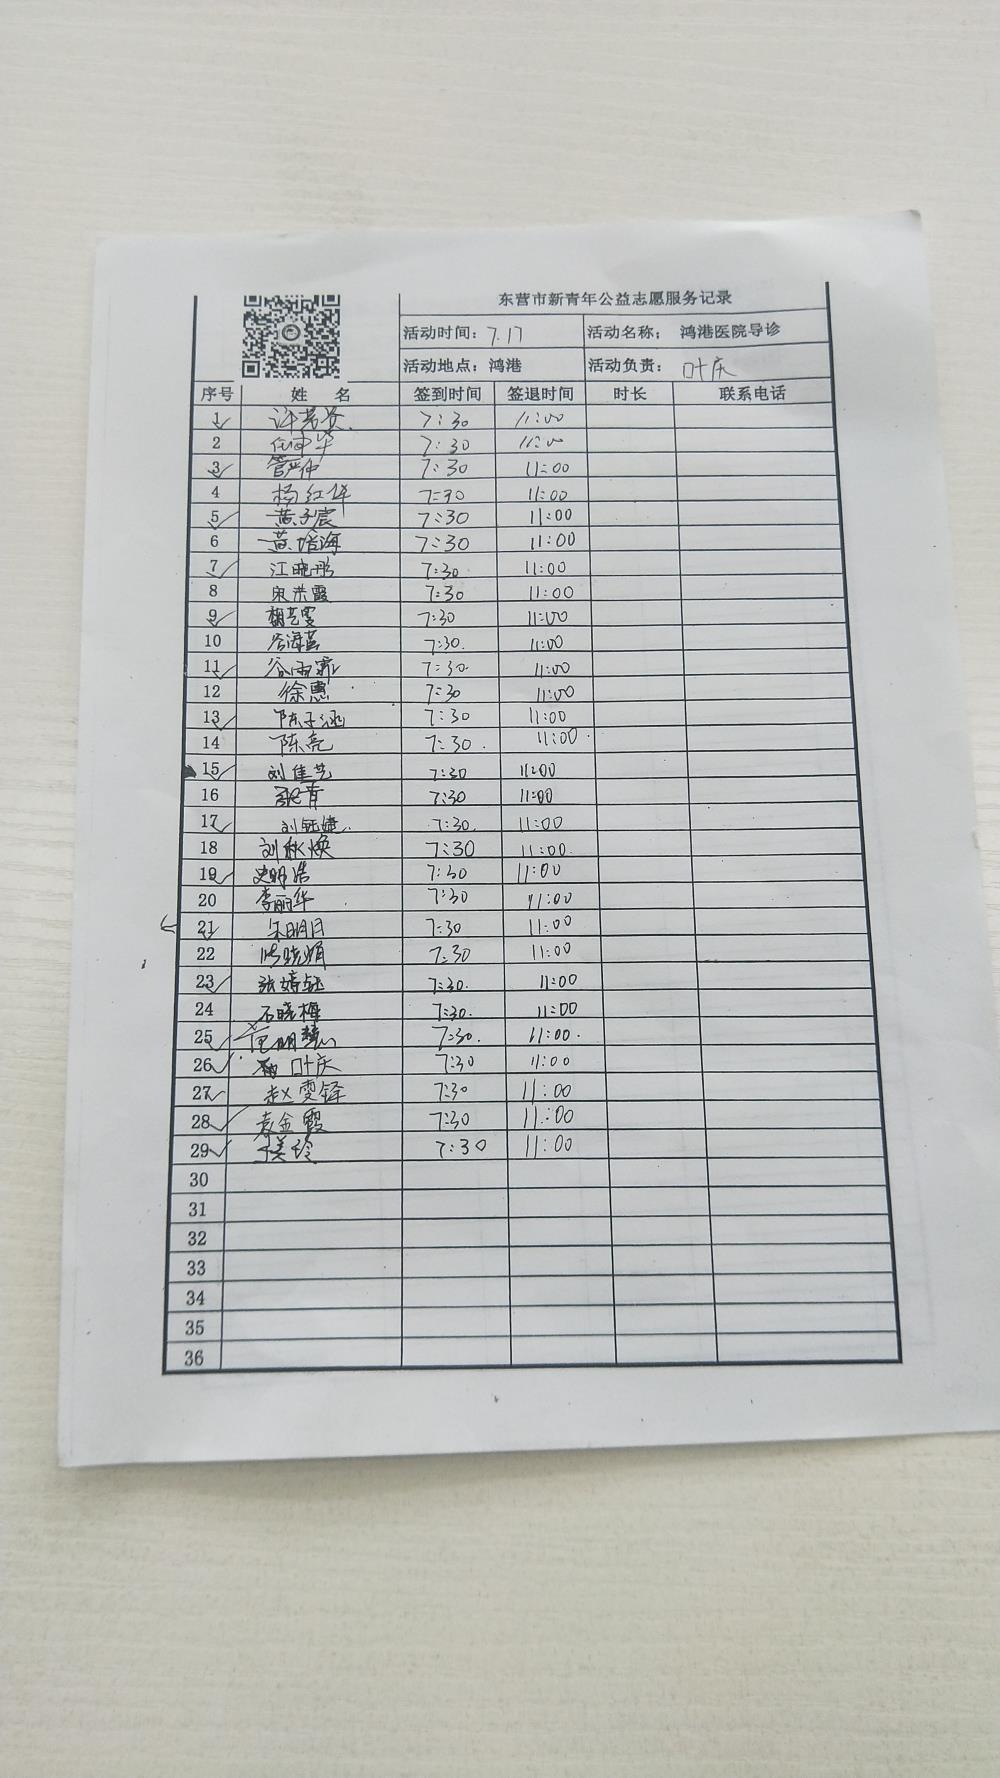 东营市新青年公益志愿服务记录
活动时间：7.17 活动名称； 鸿港医院导诊
活动地点：鸿港 活动负责： 叶庆
序号 姓 名 签到时间 签退时间 时长 联系电话
1 7:30 11:00
2 7:30 11:00
3 7:30 11:00
4 杨红华 7:30 11:00
5 黄子宸 7:30 11:00
6 黄培海 7:30 11:00
7 江晓彤 7:30 11:00
8 宋洪霞 7:30 11:00
9 7:30 11:00
10 谷海燕 7:30. 11:00
11 谷雨霏 7:30. 11:00
12 徐惠 7:30 11:00
13 陈子涵 7:30 11:00
14 陈亮 7:30. 11:00.
15 刘佳艺 7:30 11:00
16 7:30 11:00
17 刘钰婕. 7:30. 11:00
18 刘秋焕 7:30 11:00.
19 史明浩 7:30 11:00
20 李丽华 7:30 11:00
21 朱明月 7:30. 11:00
22 7:30 11:00
23 张婧钰 7:30. 11:00
24 石晓梅 7:30. 11:00
25 7:30. 11:00.
26 叶庆 7:30 11:00
27 赵雯铎 7:30 11:00
28 袁金霞 7:30 11:00
29 美玲 7:30 11:00
30
31
32
33
34
35
36